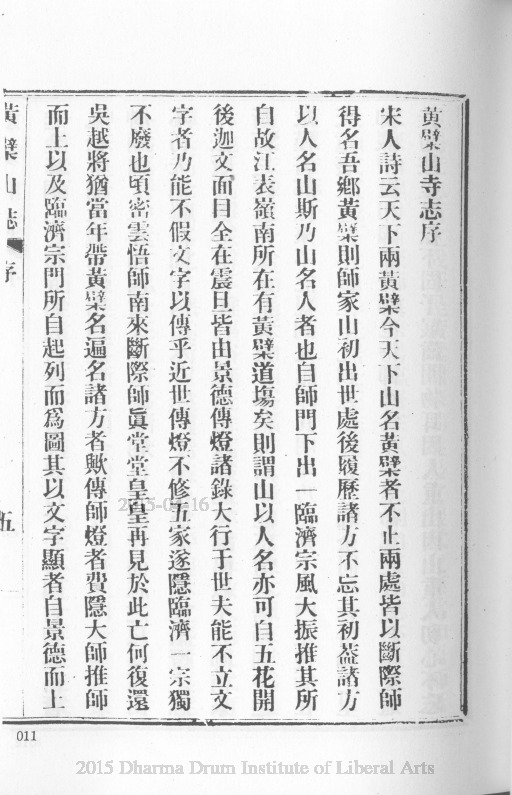 黃檗山寺志序
宋人詩云天下兩黃檗今天下山名黃檗者不止兩處皆以斷際師
得名吾鄉黃檗則師家山初出世處後履歷諸方不忘其初葢諸方
以人名山斯乃山名人者也自師門下出一臨濟宗風大振推其所
自故江表嶺南所在有黃檗道塲矣則謂山以人名亦可自五花開
後迦文面目全在震旦皆由景德傳燈諸錄大行于世夫能不立文
字者乃能不假文字以傳乎近世傳燈不修五家遂隱臨濟一宗獨
不廢也頃密雲悟師南來斷際師眞堂堂皇皇再見於此亡何復還
吳越將猶當年帶黃檗名遍名諸方者歟傳師燈者費隱大師推師
而上以及臨濟宗門所自起列而爲圖其以文字顯者自景德而上
黃檗山志 序 五
011
2015-04-16
2015 Dharma Drum Institute of Liberal Arts